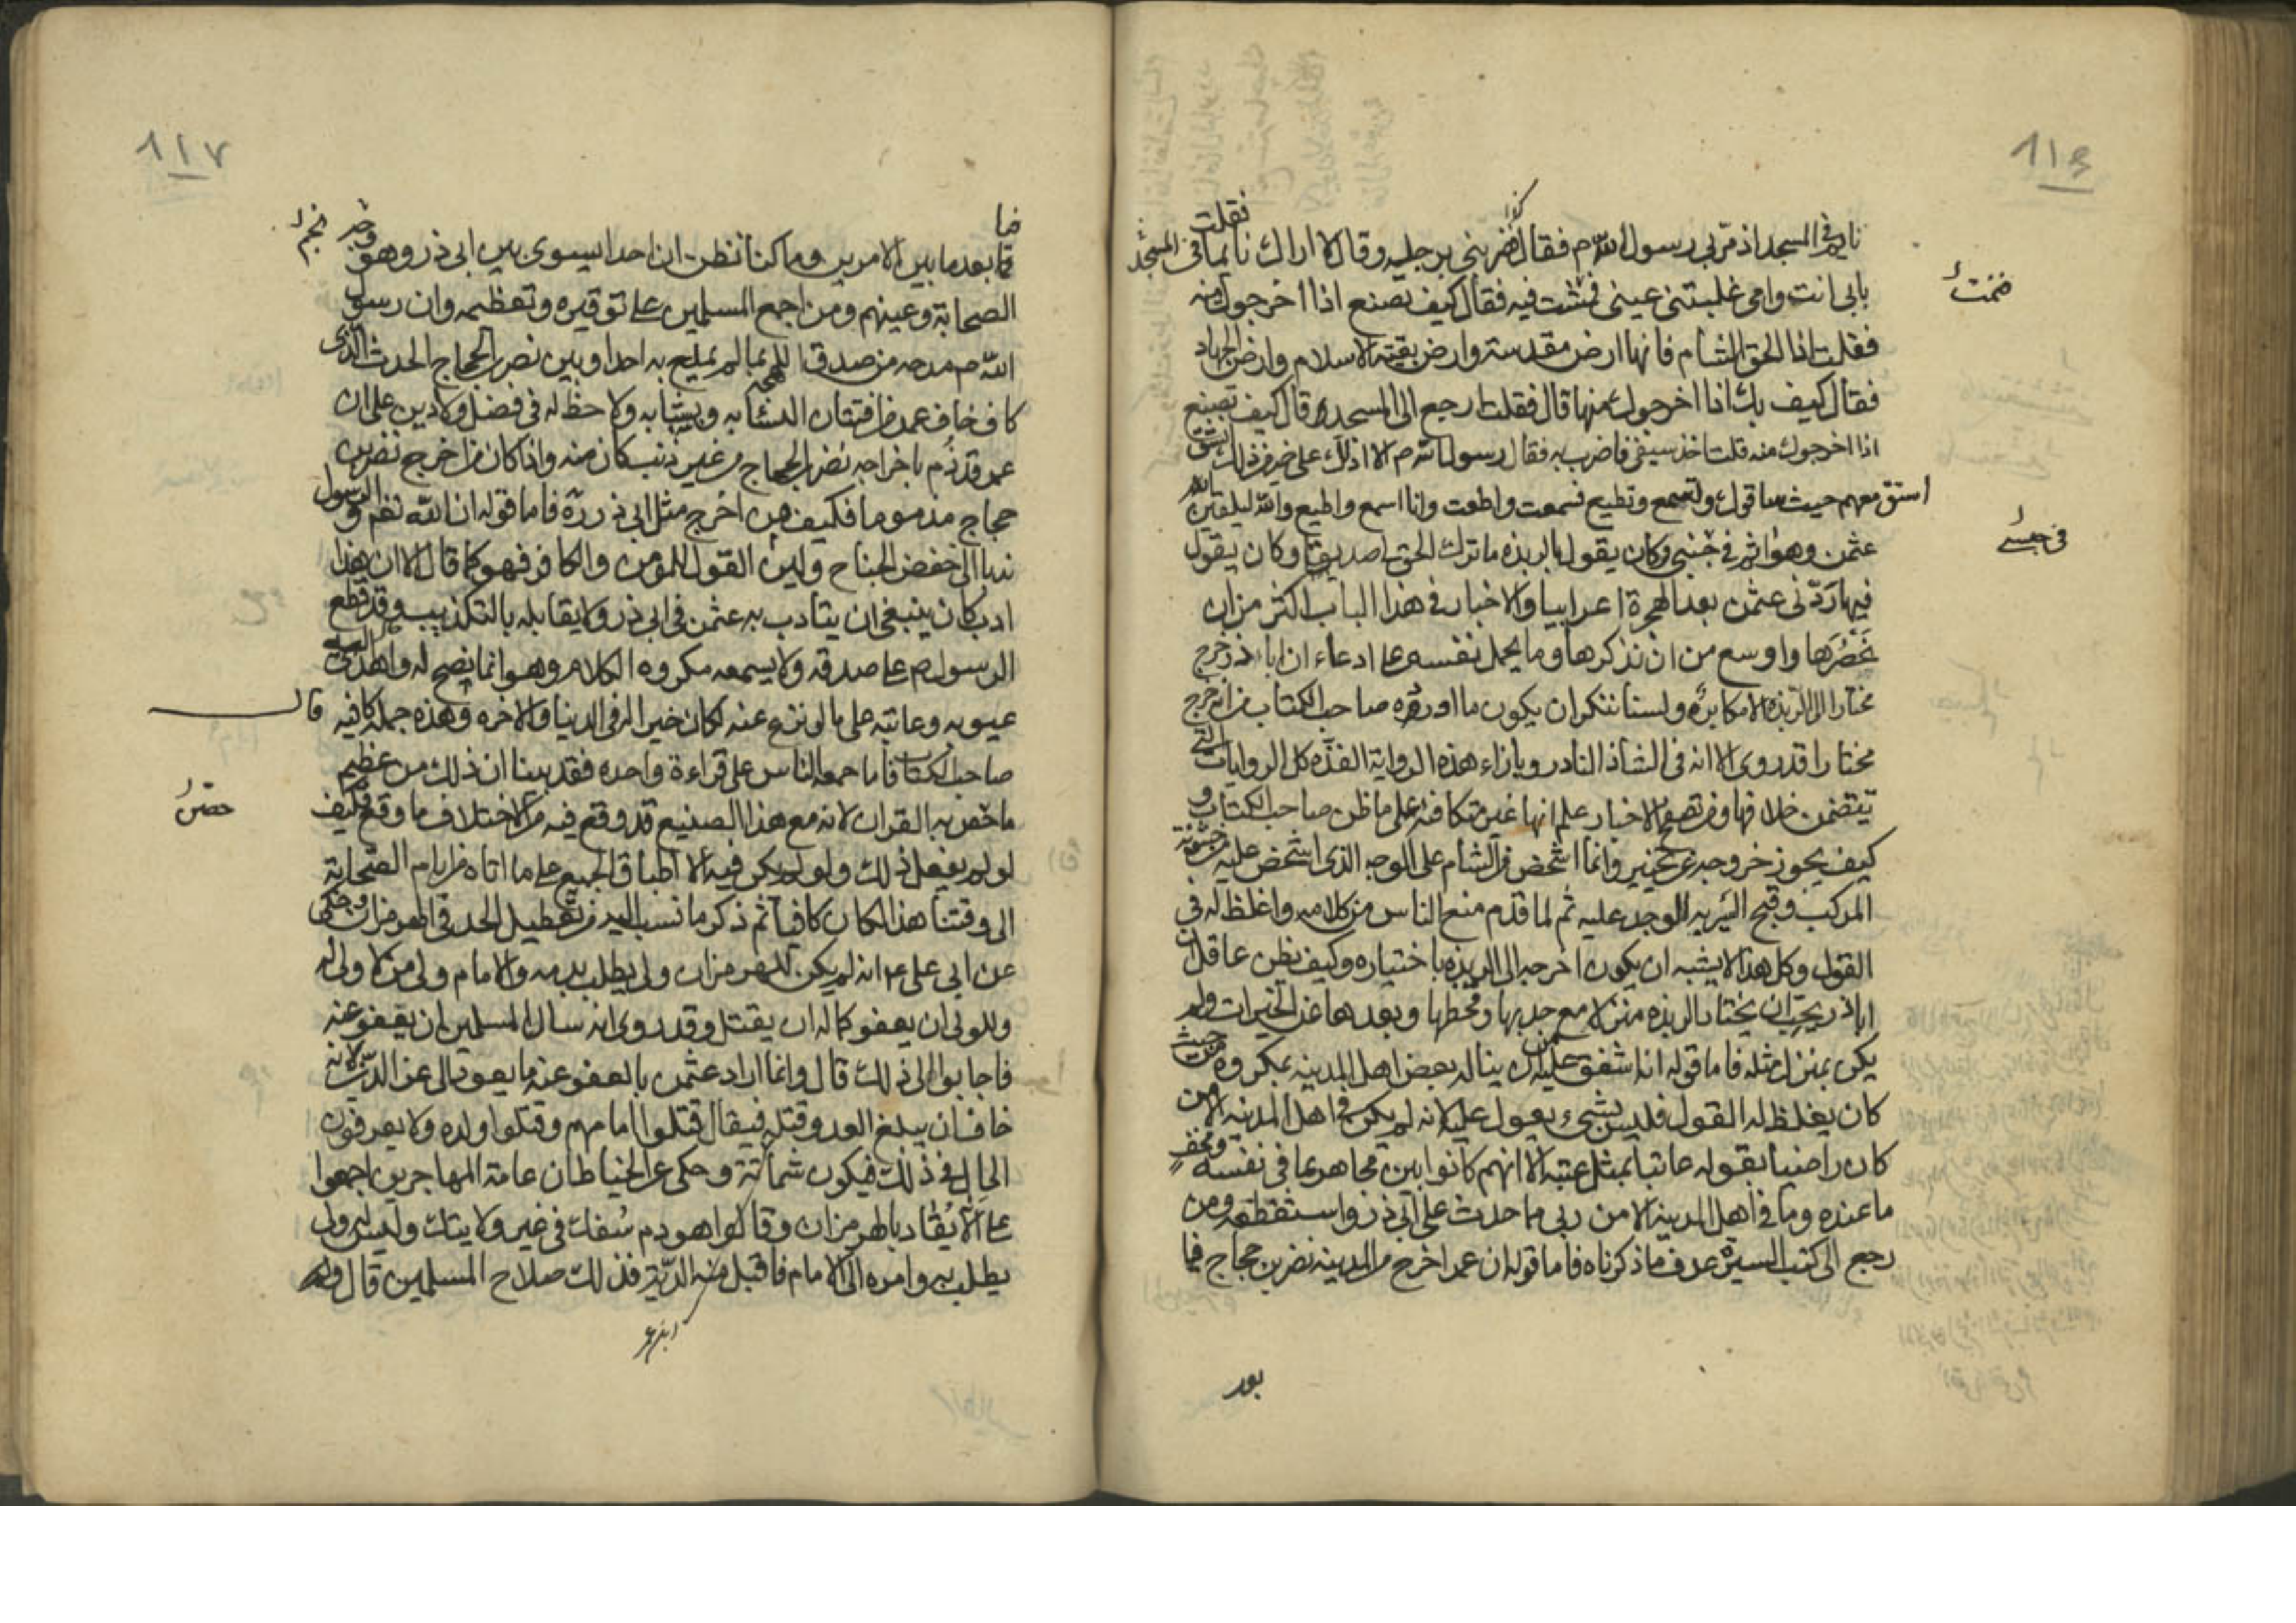 116
نايم في المسجد اذ مر بي رسول الله م فقال فضربني برجليه وقال لا اراك نايما في المسجد فقلت
بابي انت وامي غلبتني عيني فنمت فيه فقال كيف تصنع اذا اخرجوك منه
فقلت اذا الحق الشام فانها ارض مقدسة وارض بقية الاسلام وارض الجهاد
فقال كيف بك اذا اخرجوك منها قال فقلت ارجع الى المسجد قال كيف تصنع
اذا اخرجوك منه قلت اخذ سيفي فاضرب به فقال رسول الله م الا ادلك على خير من ذلك
استق معهم حيث ساقوك وتسمع وتطيع فسمعت واطعت وانا اسمع واطيع والله ليلقين الله
عثمن وهو اثم في جنبي وكان يقول بالربذه ما ترك الحق لي صديقا وكان يقول
فيها ردني عثمن بعد الهجرة اعرابيا والاخبار في هذا الباب اكثر من ان
نحصرها واوسع من ان نذكرها وما يحمل نفسه على ادعاء ان ابا ذر خرج
مختارا الى الربذه الا مكابره ولسنا ننكر ان يكون ما اورده صاحب الكتاب من انه خرج
مختارا قد روي الا انه في الشاذ النادر وبازاء هذه الرواية الفذه كل الروايات التي
تتضمن خلافها ومن تصفح الاخبار علم انها غير متكافئه على ما ظن صاحب الكتاب و
كيف يجوز خروجه عن تخيير وانما اشخص من الشام على الوجه الذي اشخص عليه من خشونة
المركب وقبح السير به للوجد عليه ثم لما قدم منع الناس من كلامه واغلظ له في
القول وكل هذا لا يشبه ان يكون اخرجه الى الربذه باختياره وكيف يظن عاقل ان
ابا ذر يحب ان يختار الربذه منزلا مع جدبها وقحطها وبعدها عن الخيرات ولم
يكن بمنزل مثله فاما قوله انه اشفق عليه من ان يناله بعض اهل المدينه بمكروه من حيث
كان يغلظ له القول فليس بشيء يعول عليه لانه لم يكن في اهل المدينه الا من
كان راضيا بقوله عاتبا بمثل عتبه الا انهم كانوا بين مجاهر بما في نفسه ومخف
ما عنده وما في اهل المدينه الا من رثى مما حدث على ابي ذر واستفظعه ومن
رجع الى كتب السيرة عرف ما ذكرناه فاما قوله ان عمر اخرج من المدينه نضر بن حجاج فيا
فنمت
في جنبي
بعد
117
فيا
بعد ما بين الامرين وما كنا نظن ان احدا يسوي بين ابي ذر وهو وجه
الصحابة وعينهم ومن اجمع المسلمين على توقيره وتعظيمه وان رسول
الله م مدحه من صدق اللهجه بما لم يمدح به احدا وبين نصر بن الحجاج الحدث الذي
كان خاف عمر من افتتان النساء به وبشبابه ولا حظ له في فضل ولا دين على ان
عمر قد ذم باخراجه نضر بن الحجاج من غير ذنب كان منه واذا كان من اخرج نضر بن
حجاج مذموما فكيف من اخرج مثل ابي ذر ره فاما قوله ان الله تع والرسول
ندبا الى خفض الجناح ولين القول للمومن والكافر فهو كما قال الا ان هذا
ادب كان ينبغي ان يتادب به عثمن في ابي ذر ولا يقابله بالتكذيب وقد قطع
الرسول م على صدقه ولا يسمعه مكروه الكلام وهو انما نصح له واهدى اليه
عيوبه وعاتبه على ما لو نزع عنه لكان خيرا له في الدنيا والاخره وهذه جمله كافيه قال
صاحب الكتاب فاما جمعه الناس على قراءة واحده فقد بينا ان ذلك من عظيم
ما خص به القران لانه مع هذا الصنيع قد وقع فيه من الاختلاف ما وقع فكيف
لو لم يفعل ذلك ولو لم يكن فيه الا اطباق الجميع على ما اتاه من ايام الصحابة
الى وقتنا هذا لكان كافيا ثم ذكر ما نسب اليه من تعطيل الحد في الهرمزان وحكى
عن ابي علي انه لم يكن للهرمزان ولي يطلب بدمه والامام ولي من لا ولي له
وللولي ان يعفو كما له ان يقتل وقد روي انه سال المسلمين ان يعفو عنه
فاجابوا الى ذلك قال وانما اراد عثمن بالعفو عنه ما يعود الى عز الدين لانه
خاف ان يبلغ العدو قتله فيقال قتلوا امامهم وقتلوا ولده ولا يعرفون
الحال في ذلك فيكون شماتة وحكى عن الخياط ان عامة المهاجرين اجمعوا
على الا يقاد بالهرمزان وقالوا هو دم سفك في غير ولايتك وليس له ولي
يطلب به وامره الى الامام فاقبل منه الدية فذلك صلاح المسلمين قال ولم
حصن